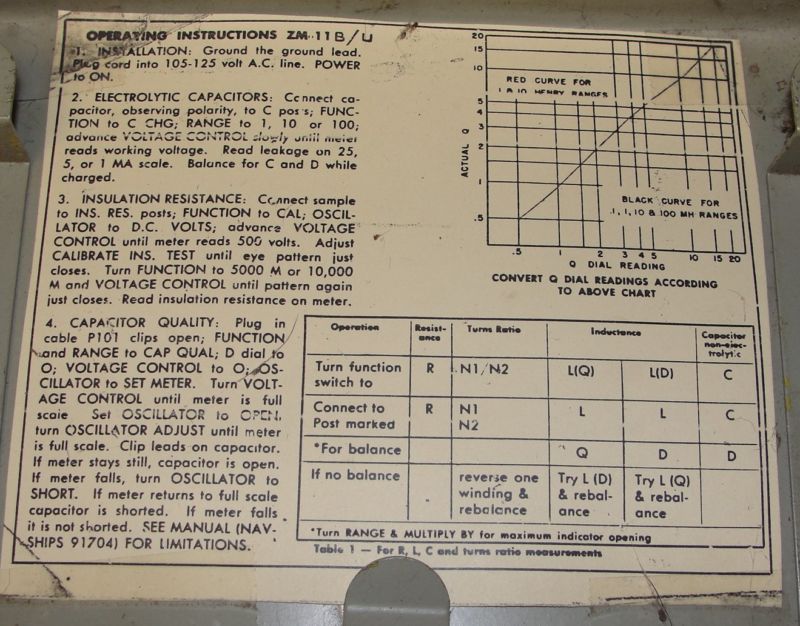 OPERATING INSTRUCTIONS ZM-11B/U
1. INSTALLATION: Ground the ground lead.
Plug cord into 105-125 volt A.C. line. POWER
to ON.
2. ELECTROLYTIC CAPACITORS: Connect ca-
pacitor, observing polarity, to C posts; FUNC-
TION to C CHG; RANGE to 1, 10 or 100;
advance VOLTAGE CONTROL slowly until meter
reads working voltage. Read leakage on 25,
5, or 1 MA scale. Balance for C and D while
charged.
3. INSULATION RESISTANCE: Connect sample
to INS. RES. posts; FUNCTION to CAL; OSCIL-
LATOR to D.C. VOLTS; advance VOLTAGE
CONTROL until meter reads 500 volts. Adjust
CALIBRATE INS. TEST until eye pattern just
closes. Turn FUNCTION to 5000 M or 10,000
M and VOLTAGE CONTROL until pattern again
just closes. Read insulation resistance on meter.
4. CAPACITOR QUALITY: Plug in
cable P101 clips open; FUNCTION
and RANGE to CAP QUAL; D dial to
O; VOLTAGE CONTROL to O; OS-
CILLATOR to SET METER. Turn VOLT-
AGE CONTROL until meter is full
scale Set OSCILLATOR to OPEN,
turn OSCILLATOR ADJUST until meter
is full scale. Clip leads on capacitor.
If meter stays still, capacitor is open.
If meter falls, turn OSCILLATOR to
SHORT. If meter returns to full scale
capacitor is shorted. If meter falls
it is not shorted. SEE MANUAL (NAV-
SHIPS 91704) FOR LIMITATIONS.
20
15
10
5
4
3
2
1
.5
ACTUAL Q
RED CURVE FOR
1 & 10 HENRY RANGES
BLACK CURVE FOR
.1, 1, 10 & 100 MH RANGES
.5 1 2 3 4 5 10 15 20
Q DIAL READING
CONVERT Q DIAL READINGS ACCORDING
TO ABOVE CHART
Operation Resist-ance Turns Ratio Inductance Capacitor non-elec-trolytic
Turn function switch to R N1/N2 L(Q) L(D) C
Connect to Post marked R N1 N2 L L C
*For balance Q D D
If no balance reverse one winding & rebalance Try L (D) & rebal-ance Try L (Q) & rebal-ance
*Turn RANGE & MULTIPLY BY for maximum indicator opening
Table 1 — For R, L, C and turns ratio measurements